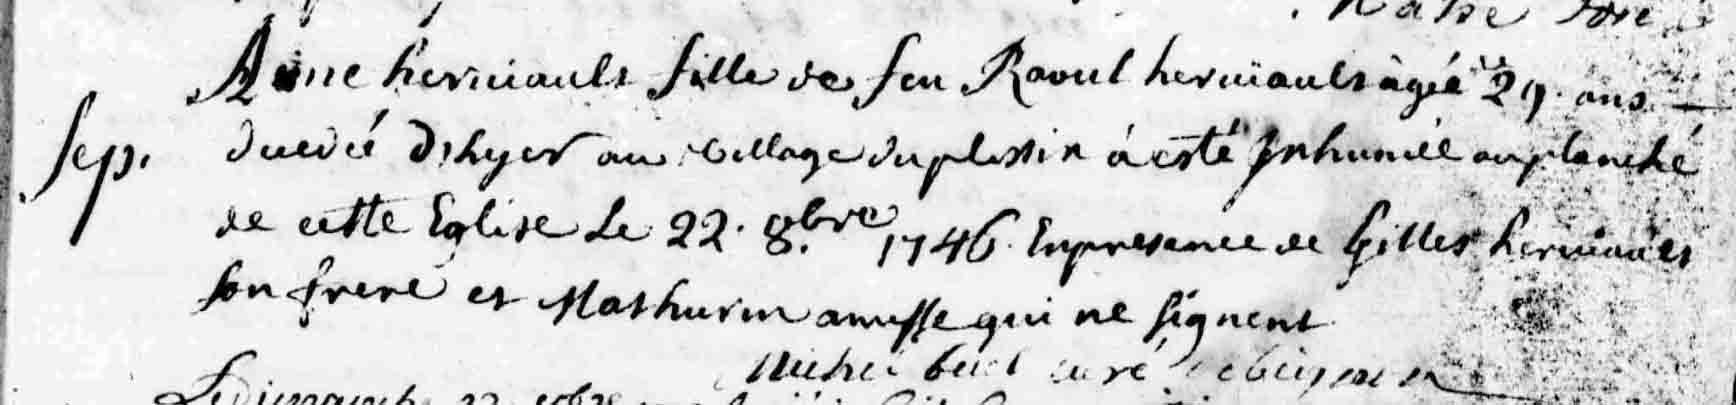 Anne herviault fille de feu Raoul herviault âgée 29. ans
Sep. decedé d'hyer au village du plessix a esté Inhumée au planché
de cette Eglise Le 22. 8.bre 1746. En presance de Gilles herviault
son frere et Mathurin amusse qui ne signent
curé